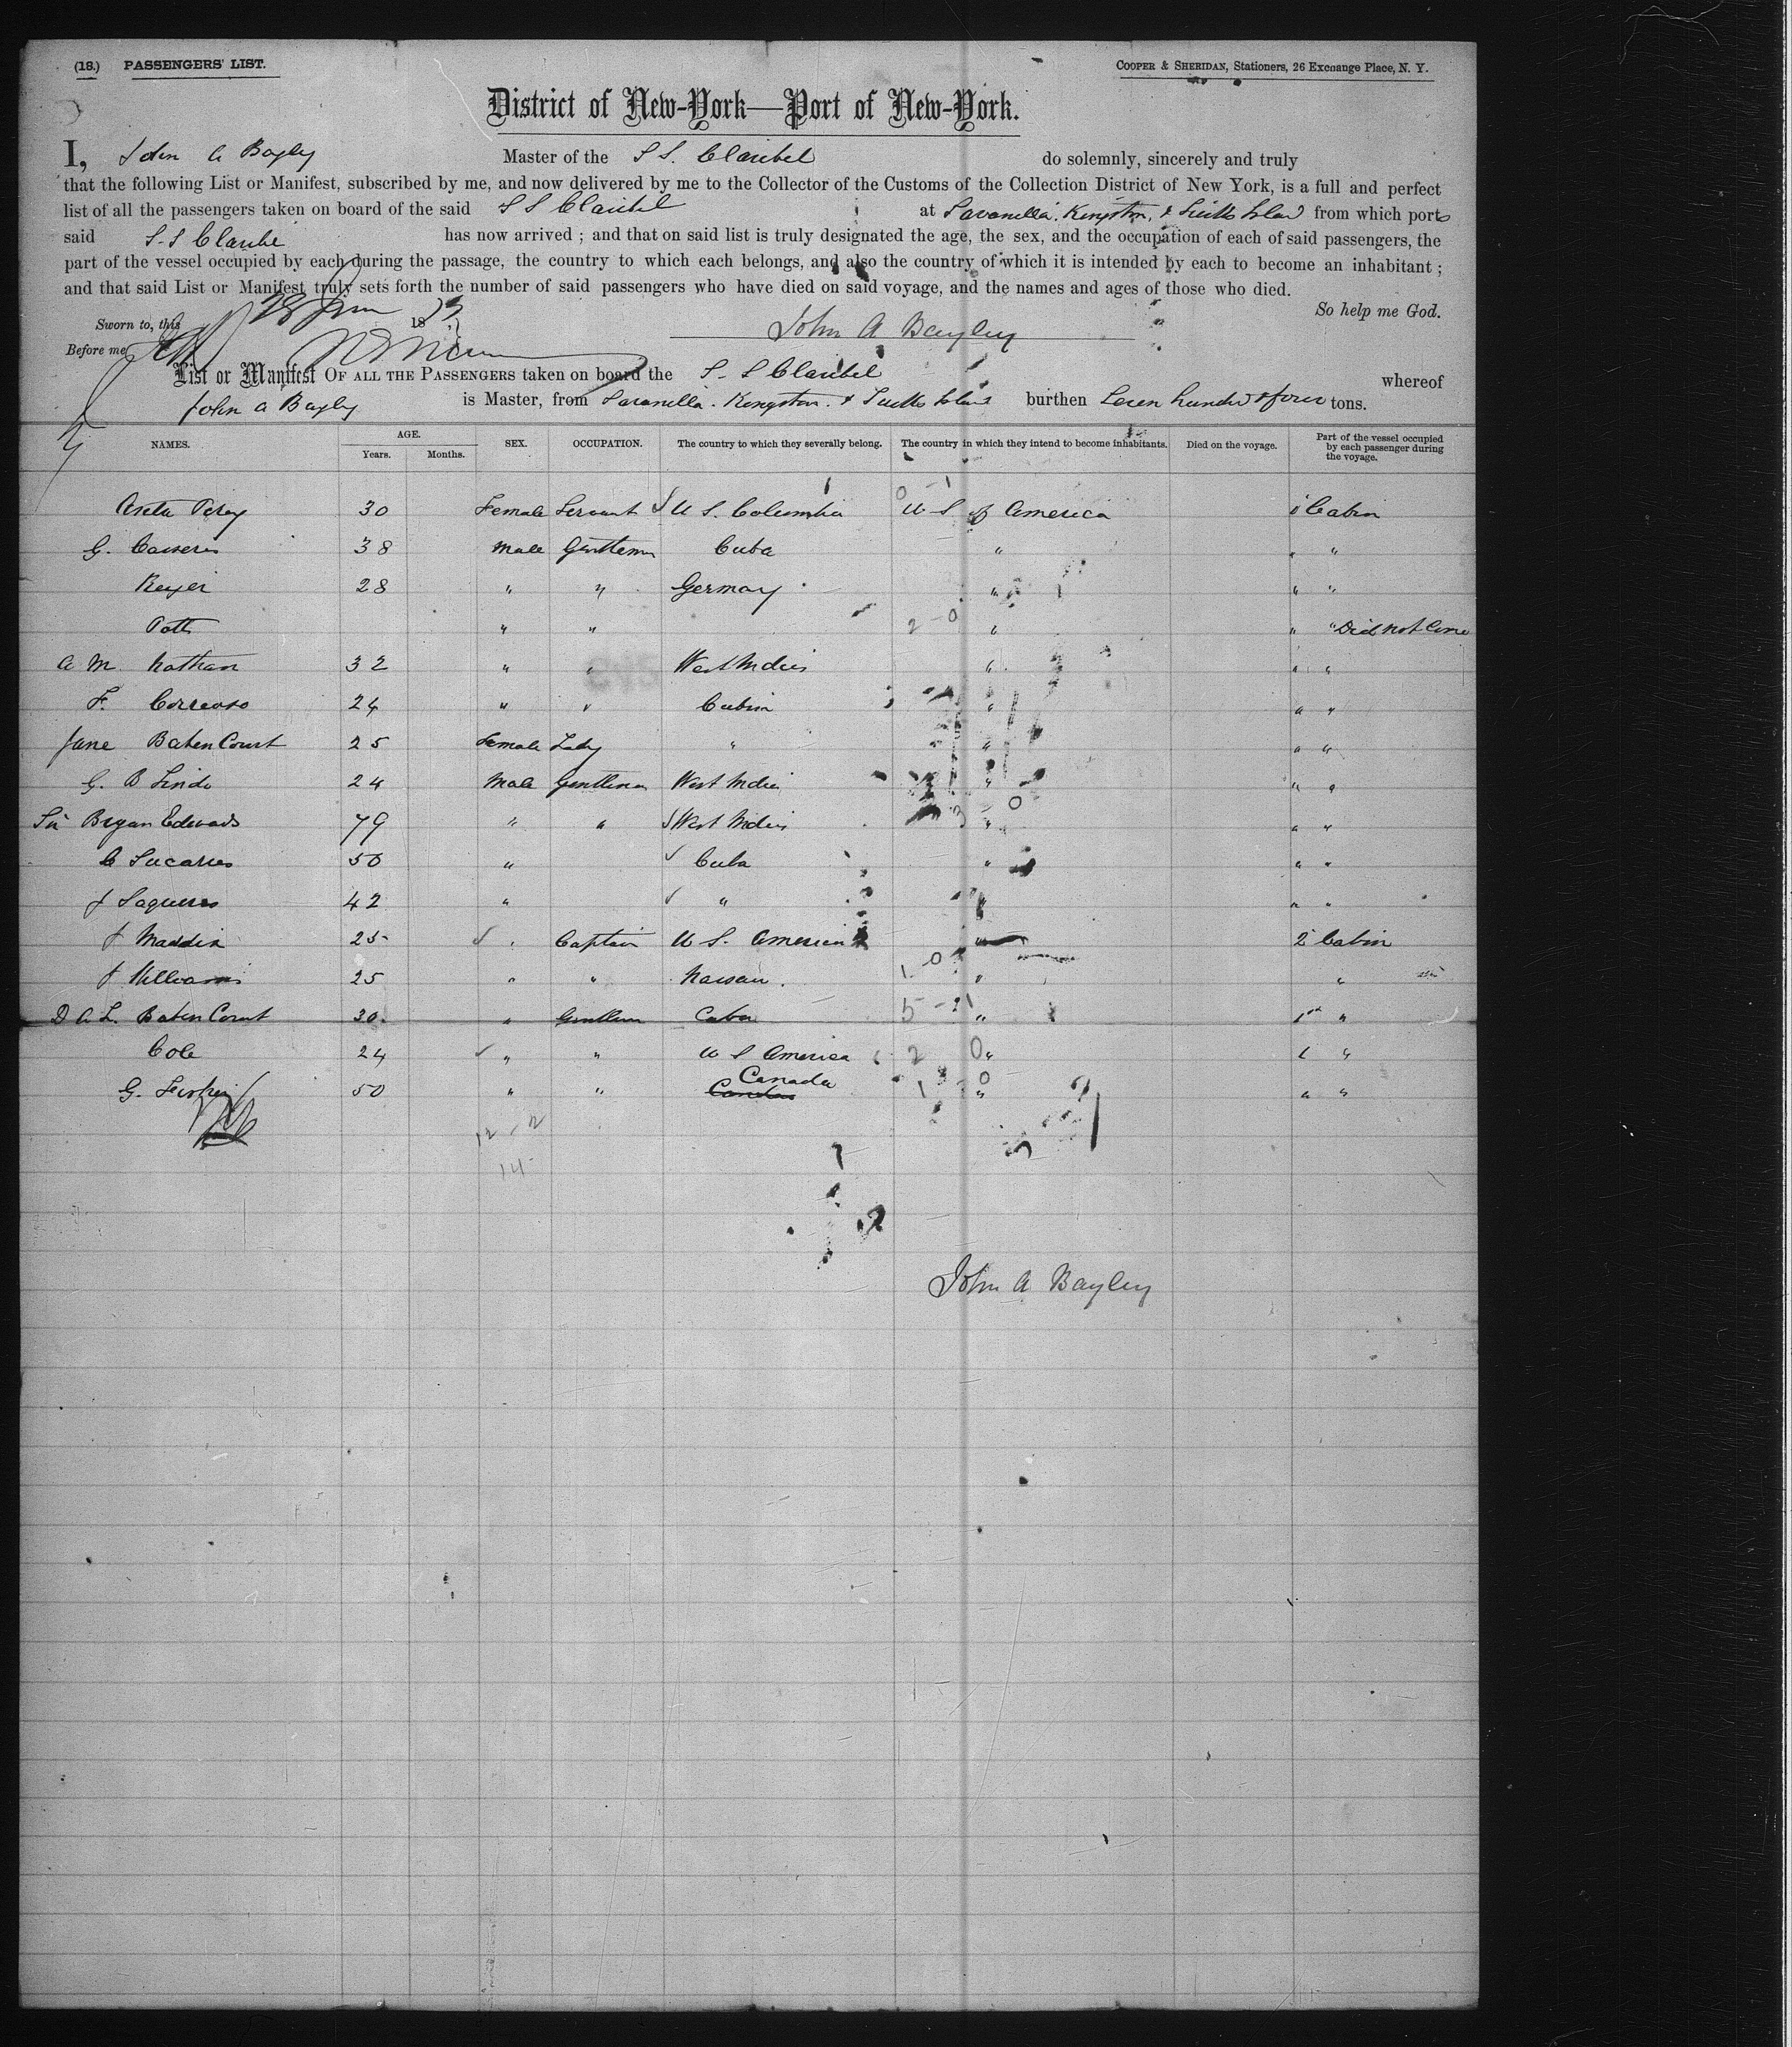 (18.) PASSENGERS' LIST.
COOPER & SHERIDAN, Stationers, 26 Exchange Place, N. Y.
District of New-York—Port of New-York.
I, John A Bayley Master of the S S. Claribel do solemnly, sincerely and truly
that the following List or Manifest, subscribed by me, and now delivered by me to the Collector of the Customs of the Collection District of New York, is a full and perfect
list of all the passengers taken on board of the said S S Claribel at Savanilla. Kingston, & Island from which ports
said S.S Claribel has now arrived ; and that on said list is truly designated the age, the sex, and the occupation of each of said passengers, the
part of the vessel occupied by each during the passage, the country to which each belongs, and also the country of which it is intended by each to become an inhabitant ;
and that said List or Manifest truly sets forth the number of said passengers who have died on said voyage, and the names and ages of those who died.
So help me God.
Sworn to, this 28 18
John A Bayley
Before me
List or Manifest OF ALL THE PASSENGERS taken on board the S. S Claribel whereof
John A Bayley is Master, from Savanilla. Kingston. & burthen Seven hundred & four tons.
NAMES. AGE. Years. Months. SEX. OCCUPATION. The country to which they severally belong. The country in which they intend to become inhabitants. Died on the voyage. Part of the vessel occupied by each passenger during the voyage.
30 Female Servant U S. Columbia U S of America 1 Cabin
G. 38 Male Gentleman Cuba " " "
28 " " Germany " " "
" " " " " Did not Come
A M. Nathan 32 " " West Indies " " "
F. 24 " " Cuban " " "
Jane BatenCourt 25 Female Lady " " " "
G. B Lindo 24 Male Gentleman West Indies " " "
Sir Bryan Edwards 79 " " West Indies " " "
C 50 " Cuba " " "
J 42 " " " " "
J Maddin 25 " Captain U S. American " 2 Cabin
J Williams 25 " " Nassau. " "
D A L. BatenCourt 30. " Gentleman Cuba " 1st "
Cole 24 " " U S America " 1 "
G. 50 " " Canada " " "
12 - 2
14
John A Bayley